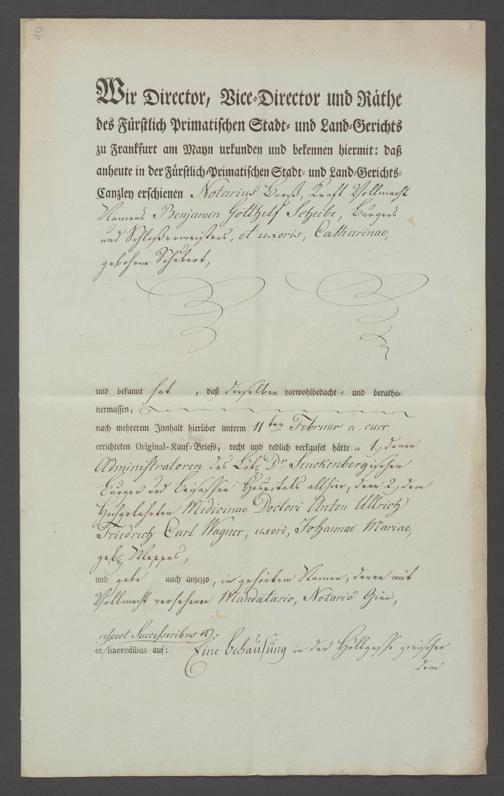 Wir Director, Vice-Director und Räthe
des Fürstlich Primatischen Stadt- und Land-Gerichts
zu Frankfurt am Mayn urkunden und bekennen hiermit: daß
anheute in der Fürstlich-Primatischen Stadt- und Land-Gerichts-
Canzley erschienen Notarius Kraft Vollmacht
Namens Benjamin Gotthelf Scheibe, Burgers
und Schloßermeisters, et uxoris, Catharinae,
gebohrne Schubert,
und bekannt hat, daß dieselben vorwohlbedacht- und berathe-
nermassen,
nach mehrerem Innhalt hierüber unterm 11ten Februar a. curr.
errichteten Original-Kauf-Briefs, recht und redlich verkaufet hätten 1, denen
Administratoren des Löbl. Dr. Senckenbergischen
Burger und Hospitals allhier, dem 2, den
Hochgelehrten Medicinae Doctori Anton Ullrich
Friedrich Carl Wagner, uxori, Johannae Mariae,
geb. Mappes,
und gabe auch anjezo, in gehörtem Namen, deren mit
Vollmacht versehenen Mandatario, Notario Gier,
respect. Successoribus
et haeredibus auf: Eine Behaußung in der Höllgasse zwischen
dem